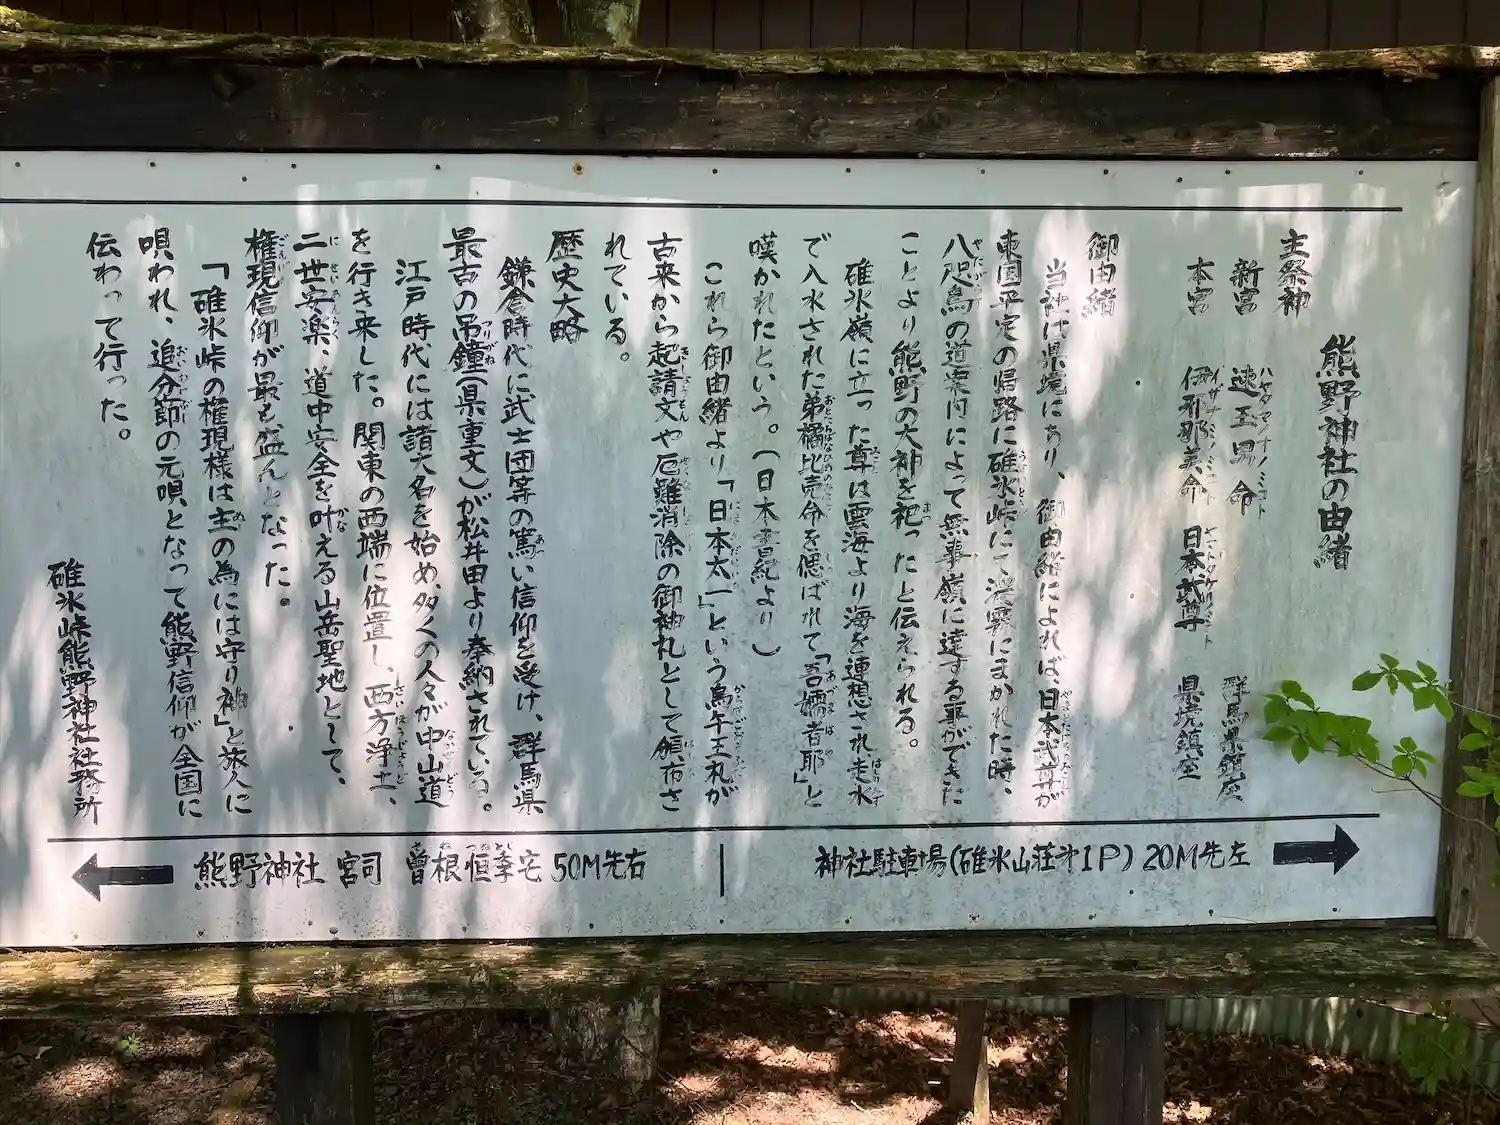 熊野神社の由緒
主祭神
新宮 速玉男命 群馬県鎮座
本宮 伊邪那美命 日本武尊 県境鎮座
御由緒
当社は県境にあり、御由緒によれば、日本武尊が
東国平定の帰路に碓氷峠にて濃霧にまかれた時、
八咫烏の道案内によって無事嶺に達する事ができた
ことより熊野の大神を祀ったと伝えられる。
碓氷嶺に立った尊は雲海より海を連想され走水
で入水された弟橘比売命を偲ばれて「吾嬬者耶」と
嘆かれたという。(日本書紀より)
これら御由緒より「日本太一」という烏午王札が
古来から起請文や厄難消除の御神札として頒布さ
れている。
歴史大略
鎌倉時代に武士団等の篤い信仰を受け、群馬県
最古の吊鐘(県重文)が松井田より奉納されている。
江戸時代には諸大名を始め、多くの人々が中山道
を行き来した。関東の西端に位置し、西方浄土、
二世安楽、道中安全を叶える山岳聖地として、
権現信仰が最も盛んとなった。
「碓氷峠の権現様は主の為には守り神」と旅人に
唄われ、追分節の元唄となって熊野信仰が全国に
伝わって行った。
碓氷峠熊野神社社務所
神社駐車場(碓氷山荘オ1P) 20M先左
熊野神社 宮司 曽根恒季宅 50M先右